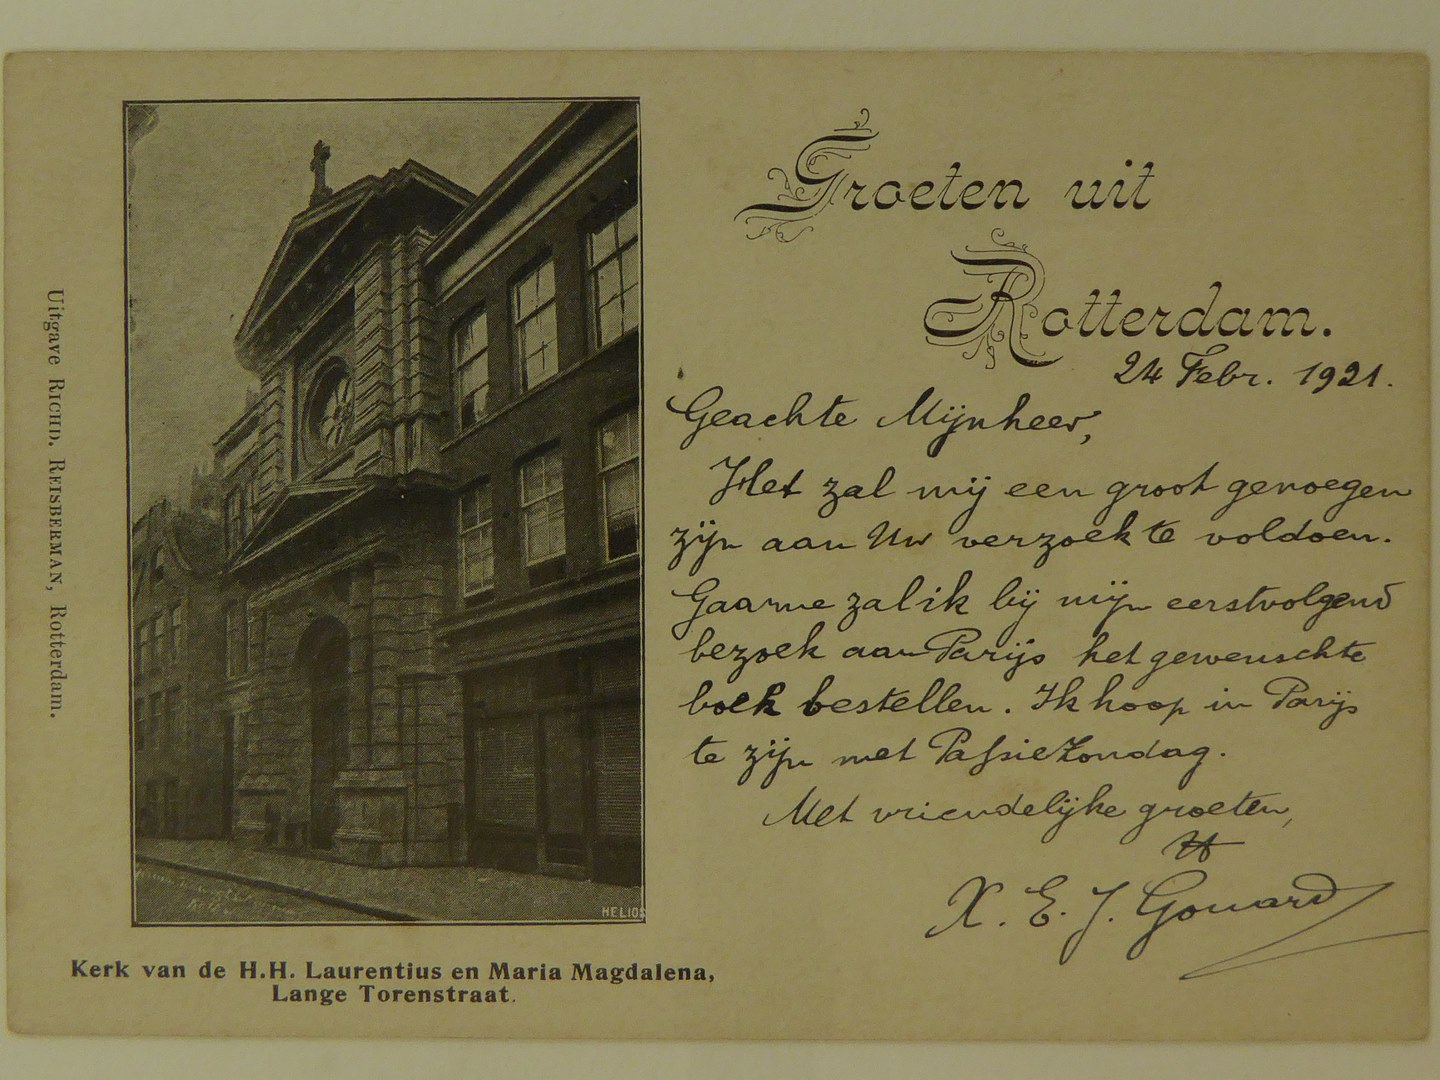 Groeten uit
Rotterdam.
24 Febr. 1921.
Geachte Mijnheer,
Het zal mij een groot genoegen
zijn aan Uw verzoek te voldoen.
Gaarne zal ik bij mijn eerstvolgend
bezoek aan Parijs het gewenschte
boek bestellen. Ik hoop in Parijs
te zijn met Passiezondag.
Met vriendelijke groeten,
X. E. J. Gouard
Uitgave RICHD. REISBERMAN, Rotterdam.
HELIOS
Kerk van de H.H. Laurentius en Maria Magdalena,
Lange Torenstraat.